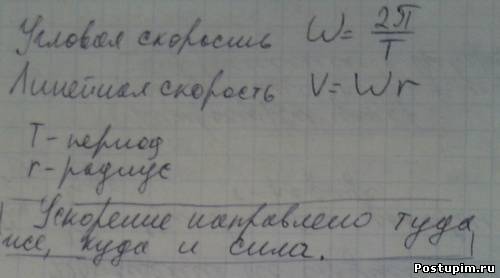 Угловая скорость W = 2π/T
Линейная скорость V = Wr
T - период
r - радиус
Ускорение направлено туда
же, куда и сила.
Postupim.ru